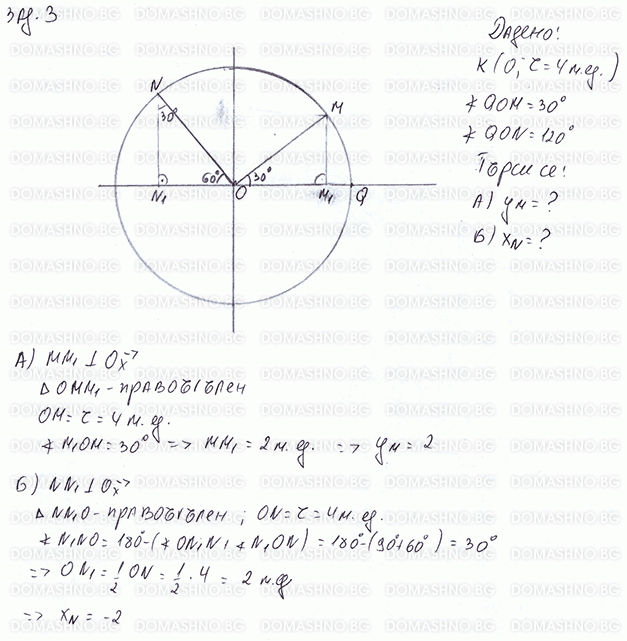 Зад. 3
Дадено:
K(O; r = 4 м.ед.)
∢QOM = 30°
∢QON = 120°
Търси се:
А) yM = ?
Б) xN = ?
N
M
30°
60°
30°
N₁
O
M₁
Q
А) MM₁ ⊥ Ox→
△OMM₁ - правоъгълен
OM = r = 4 м.ед.
∢M₁OM = 30° => MM₁ = 2 м.ед. => yM = 2
Б) NN₁ ⊥ Ox→
△NN₁O - правоъгълен ; ON = r = 4 м.ед.
∢N₁NO = 180° - (∢ON₁N + ∢N₁ON) = 180° - (90° + 60°) = 30°
=> ON₁ = 1/2 ON = 1/2 . 4 = 2 м.ед
=> xN = -2
DOMASHNO.BG